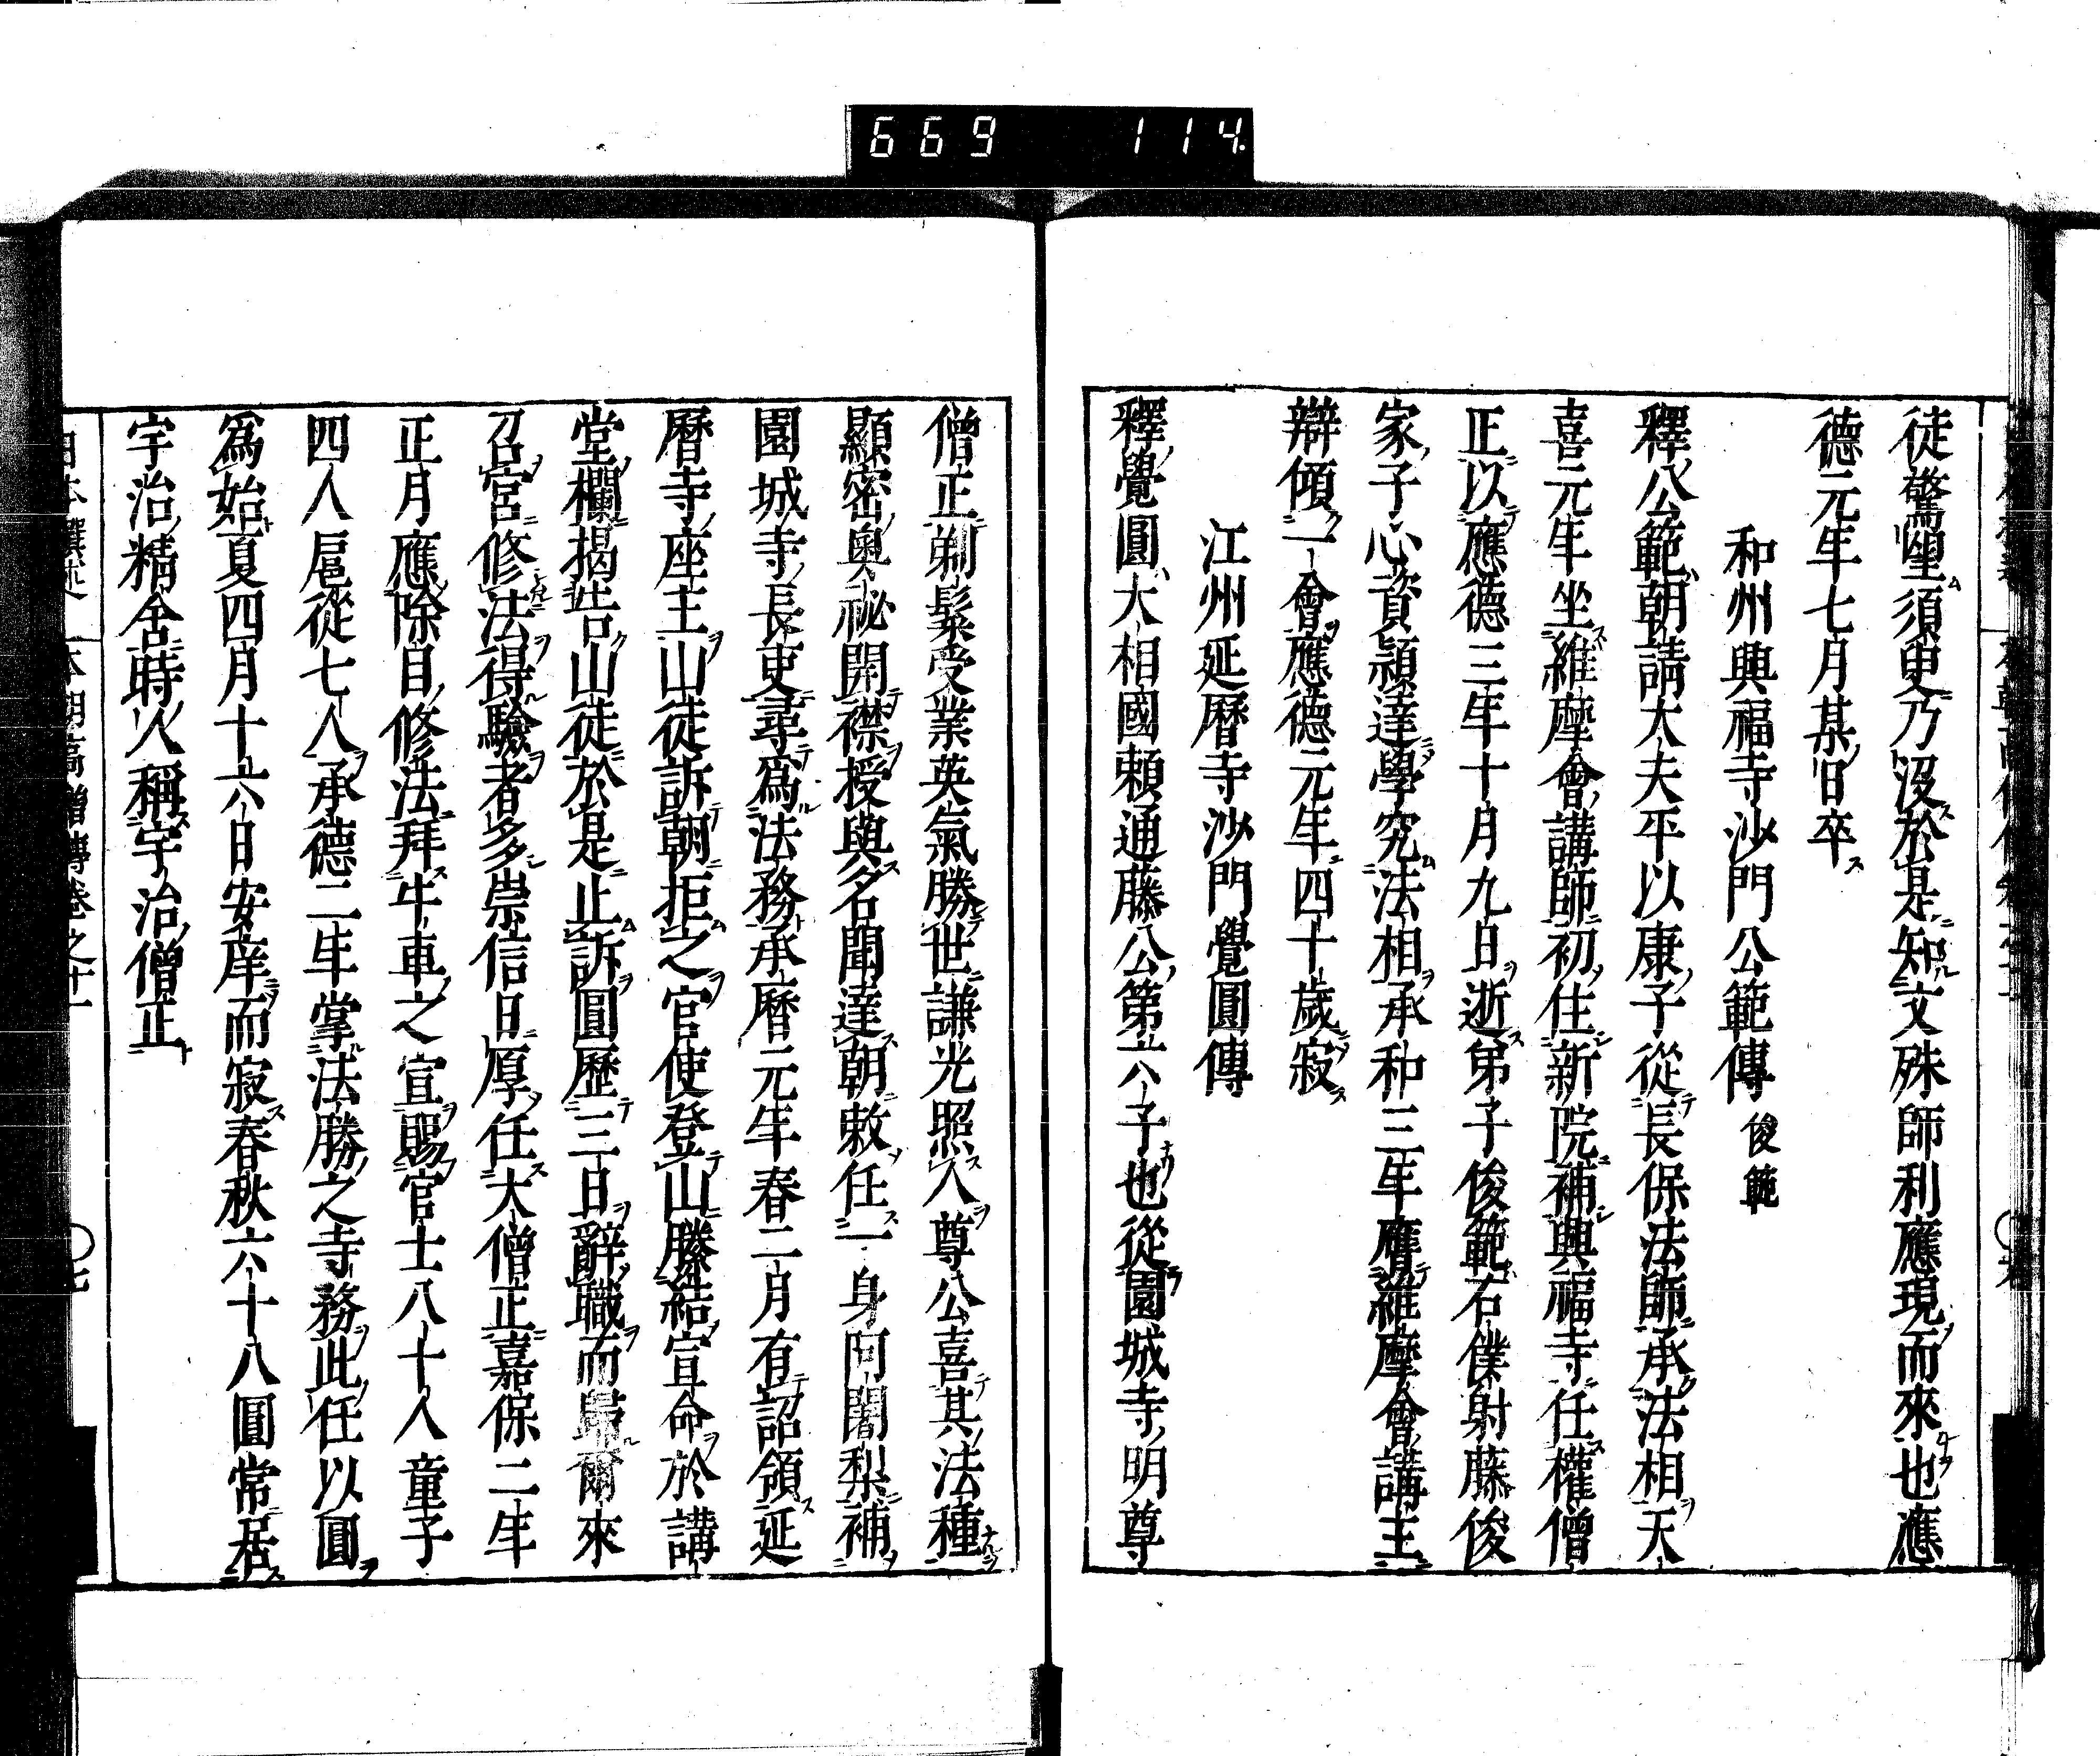 669 114
徒驚望須臾乃沒於是知文殊師利應現而來也應
德元年七月某日卒
和州興福寺沙門公範傳 俊範
釋公範朝請大夫平以康子從長保法師承法相天
喜元年坐維摩會講師初住新院補興福寺任權僧
正以應德三年十月九日逝第子俊範右僕射藤俊
家子心資穎達學究法相承和三年膺維摩會講主
辯傾一會應德元年四十歲寂
江州延曆寺沙門覺圓傳
釋覺圓大相國賴通藤公第六子也從園城寺明尊
僧正剃髮受業英氣勝世謙光照人尊公喜其法種
顯密奧祕開襟授與名聞達朝敕任一身阿闍梨補
園城寺長吏尋爲法務承曆元年春二月有詔領延
曆寺座主山徒訴朝拒之官使登山牓結宣命於講
堂欄揭告山徒於是止訴圓歷三日辭職而歸爾來
召宮修法得驗者多崇信日厚任大僧正嘉保二年
正月應除目修法拜牛車之宣賜官士八十人童子
四人扈從七人承德二年掌法勝之寺務此任以圓
爲始夏四月十六日安庠而寂春秋六十八圓常居
宇治精舍時人稱宇治僧正
日本撰述 本朝高僧傳卷之十一 〇七